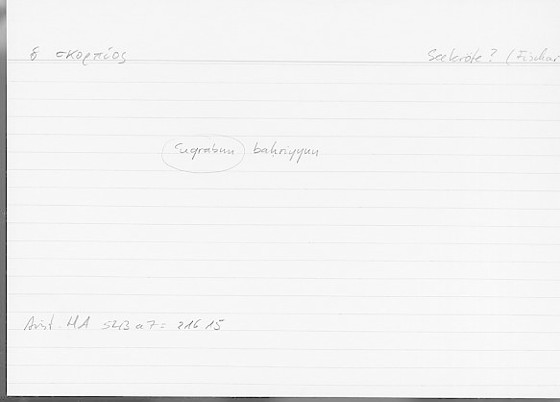 ὁ σκορπίος Seekröte? (Fischar
ʿuqrabun baḥrīyyun
Arist. HA 543 a7 = 216 15